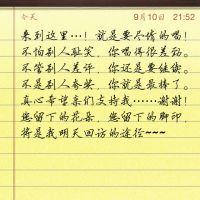 今天
9月10日 21:52
来到这里…！就是要尽情的唱！
不怕别人耻笑，你唱得很差劲。
不管别人差评，你还是要继续。
不是别人夸奖，你就是最棒了。
真心希望亲们支持我……谢谢！
您留下的花朵，您留下的脚印，
将是我明天回访的途径~~~